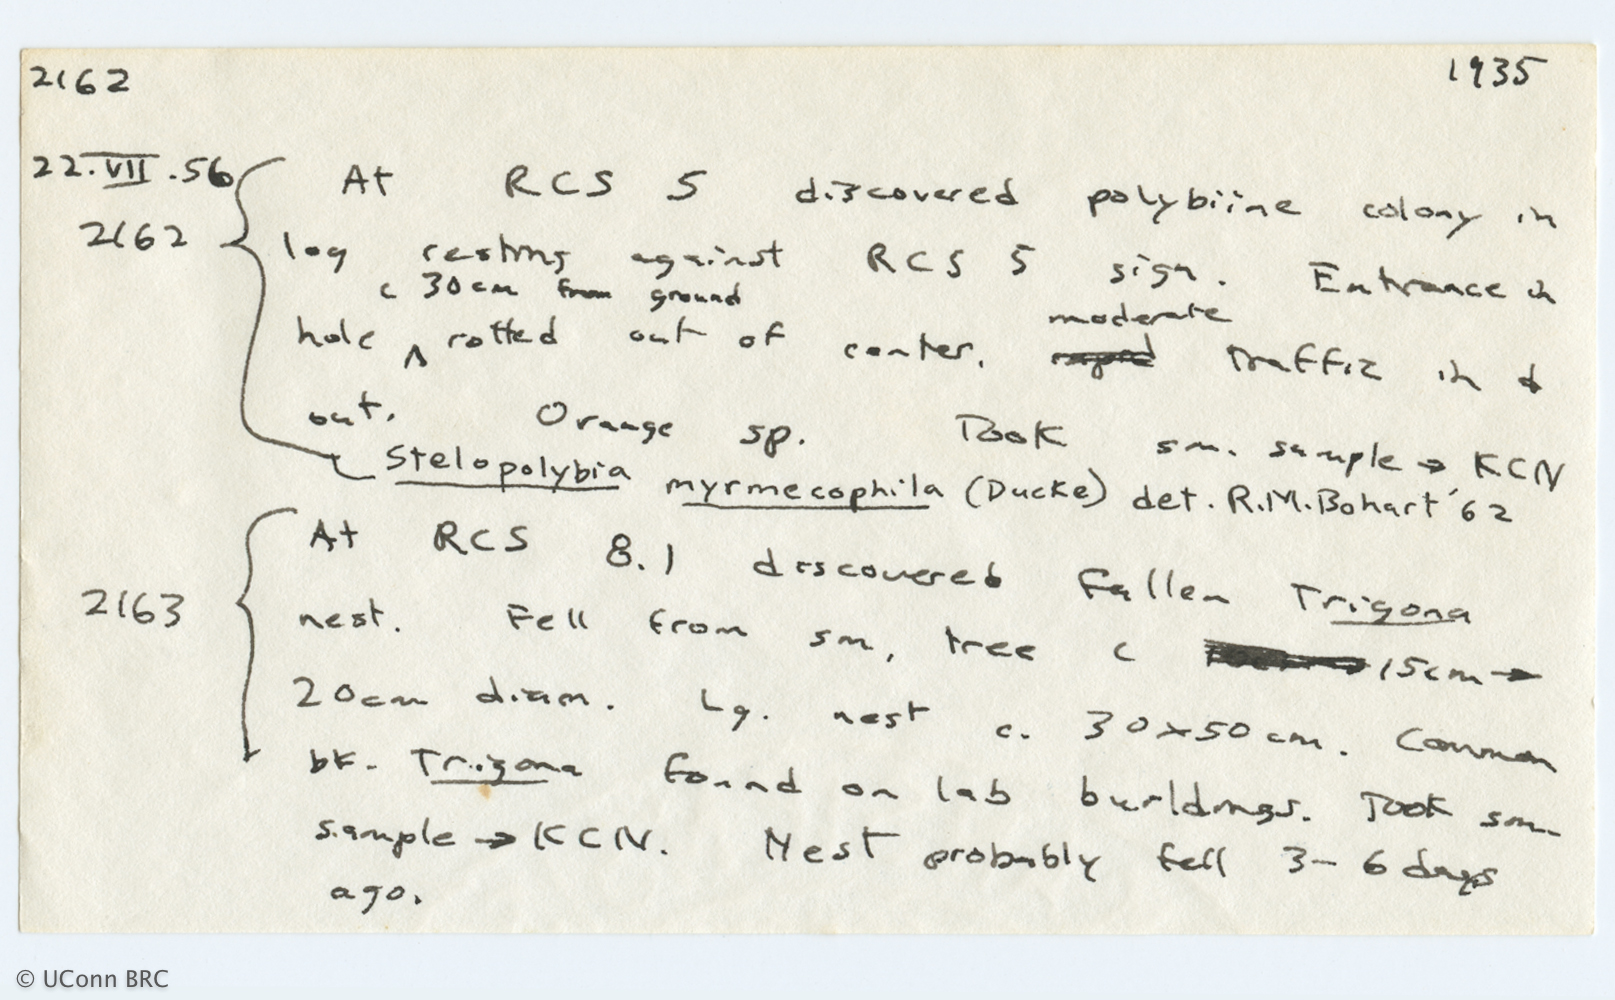 2162 1935
22.VII.56 At RCS 5 discovered polybiine colony in
2162 log resting against RCS 5 sign. Entrance in
c 30cm from ground
hole ^ rotted out of center. moderate traffic in &
out. Orange sp. Took sm. sample → KCN
Stelopolybia myrmecophila (Ducke) det. R.M.Bohart '62
At RCS 8.1 discovered fallen Trigona
2163 nest. Fell from sm. tree c 15cm →
20cm diam. Lg. nest c. 30x50cm. Common
bk. Trigona found on lab buildings. Took sm.
sample → KCN. Nest probably fell 3-6 days
ago.
© UConn BRC